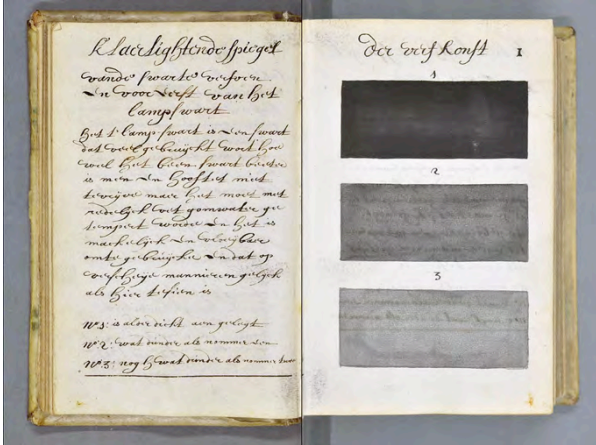 Klaerlightende Spiegel
vande swarte verfven
En voor Eerst van het
lampswart
Het t'lampswart is Een swart
dat veel gebruyckt wort hoe
wel het been swart beeter
is men En hooftet niet
te vrijve maer het moet met
redelyck vet gomwater ge
tempert worde En het is
mackelyck En vloeybaer
om te gebruycke En dat op
verscheye mannieren gelyck
als hier te sien is
N° 1: is alder dickt aen gelegt
N° 2: wat dunder als nommer Een
N° 3: nogh wat dunder als nommer twee
der verfkonst
1
1
2
3